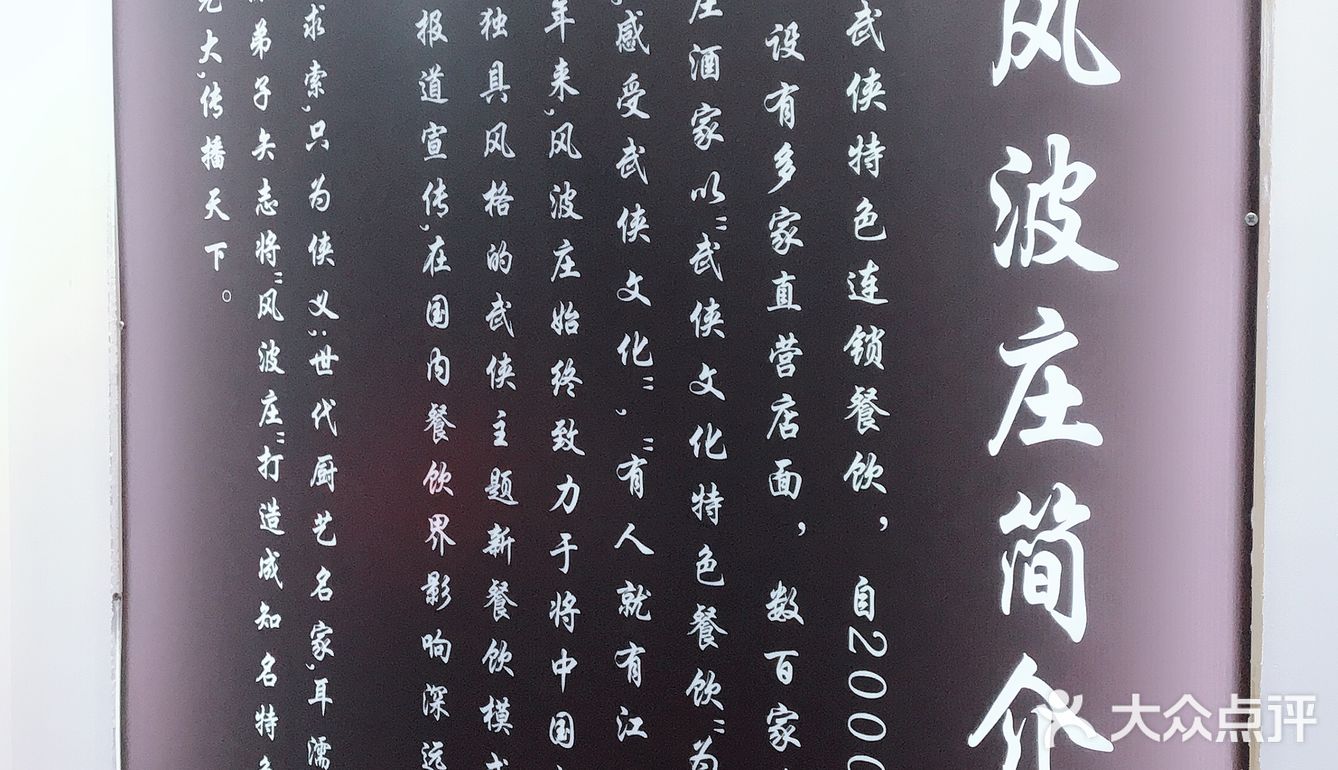 风波庄简介
武侠特色连锁餐饮，自2000
设有多家直营店面，数百家
庄酒家以"武侠文化特色餐饮"为
感受武侠文化"，"有人就有江
年来,风波庄始终致力于将中国
独具风格的武侠主题新餐饮模式
报道宣传,在国内餐饮界影响深远
求索,只为侠义;世代厨艺名家,耳濡
弟子矢志将"风波庄"打造成知名特色
大,传播天下。
大众点评